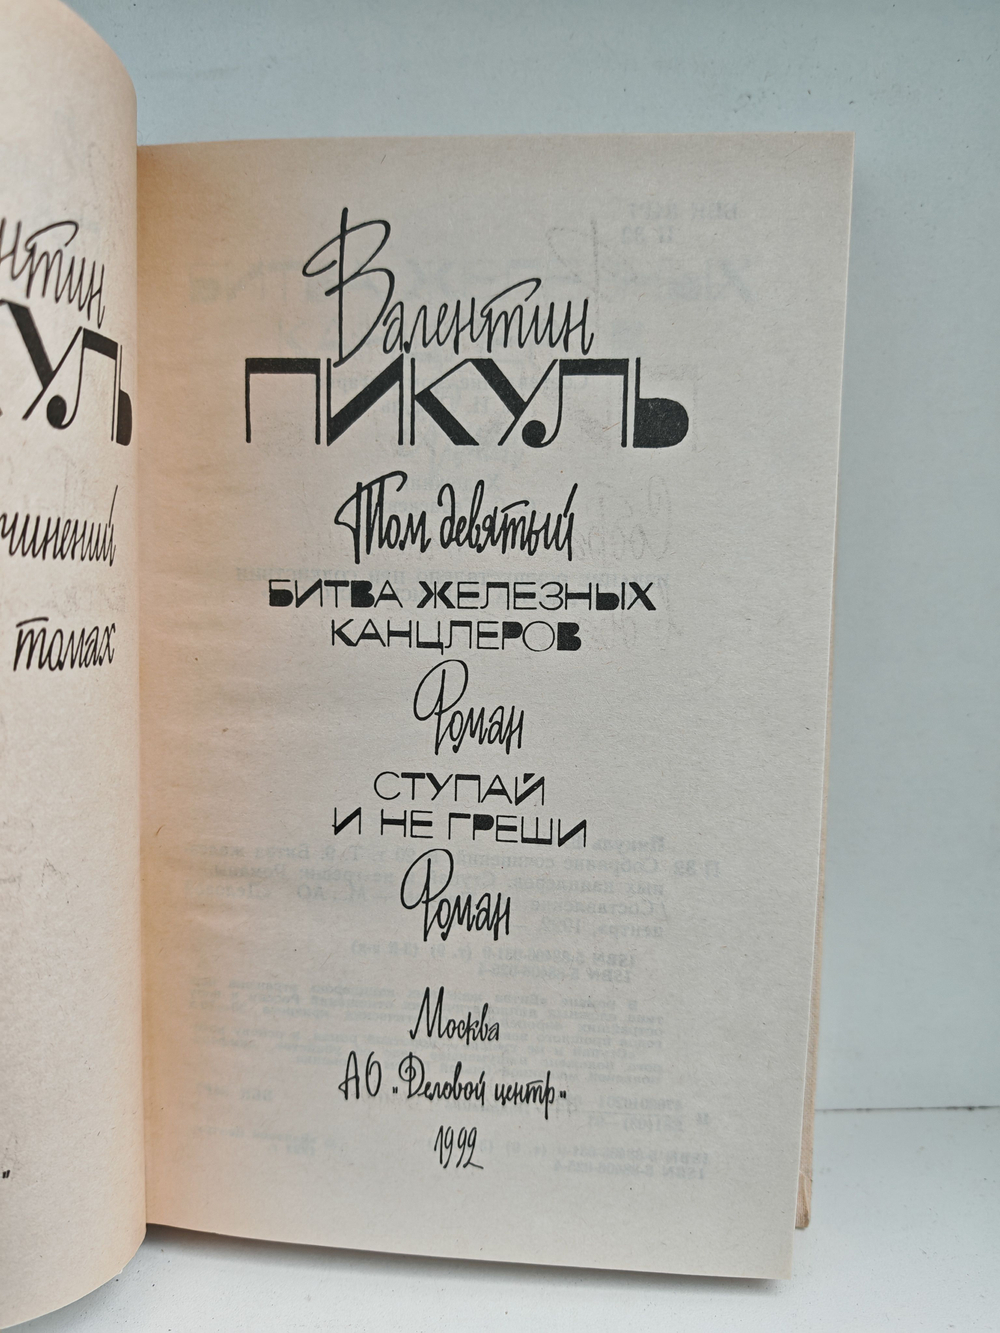 нтин
куль
чинений
томах
"
Валентин
ПИКУЛЬ
Том девятый
БИТВА ЖЕЛЕЗНЫХ
КАНЦЛЕРОВ
Роман
СТУПАЙ
И НЕ ГРЕШИ
Роман
Москва
АО „Деловой центр"
1992